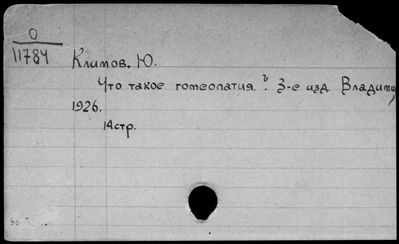 0
11784
Климов. Ю.
Что такое гомеопатия.? 3-е изд. Владиму
1926.
14стр.